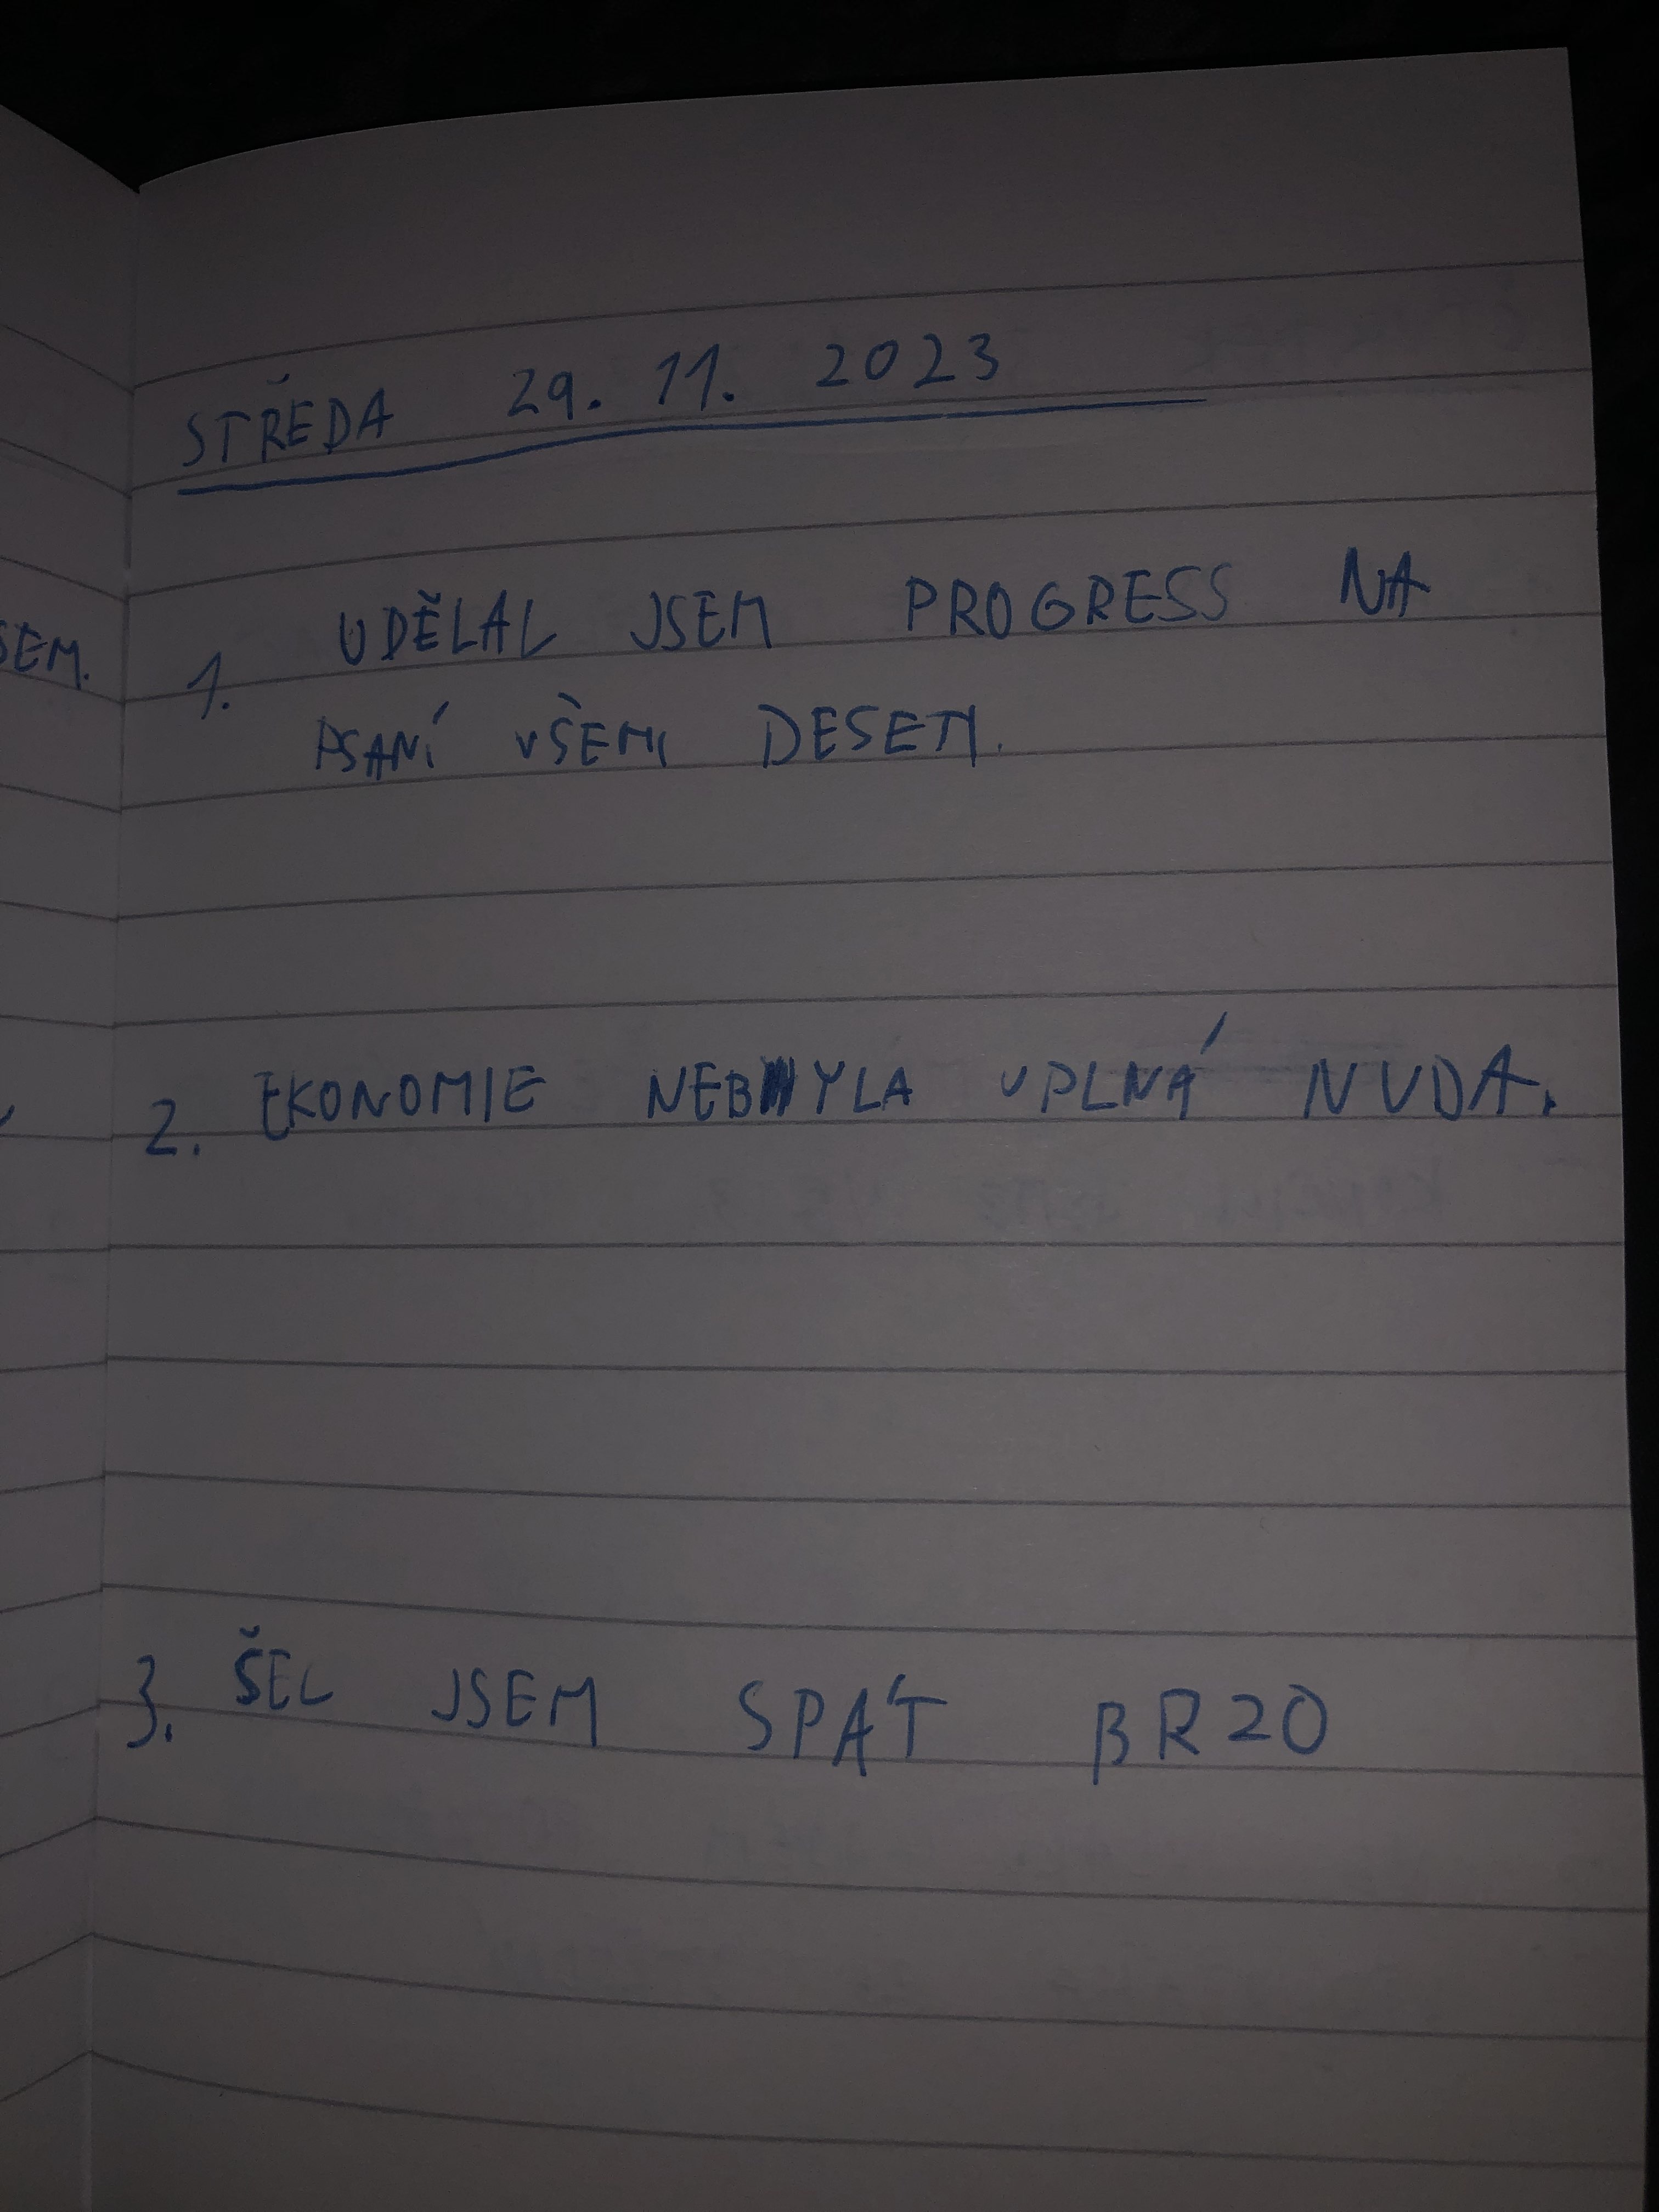 STŘEDA 29. 11. 2023
SEM.
1. UDĚLAL JSEM PROGRESS NA
PSANÍ VŠEMI DESETI.
2. EKONOMIE NEBYLA UPLNÁ NUDA.
3. ŠEL JSEM SPÁT BRZO